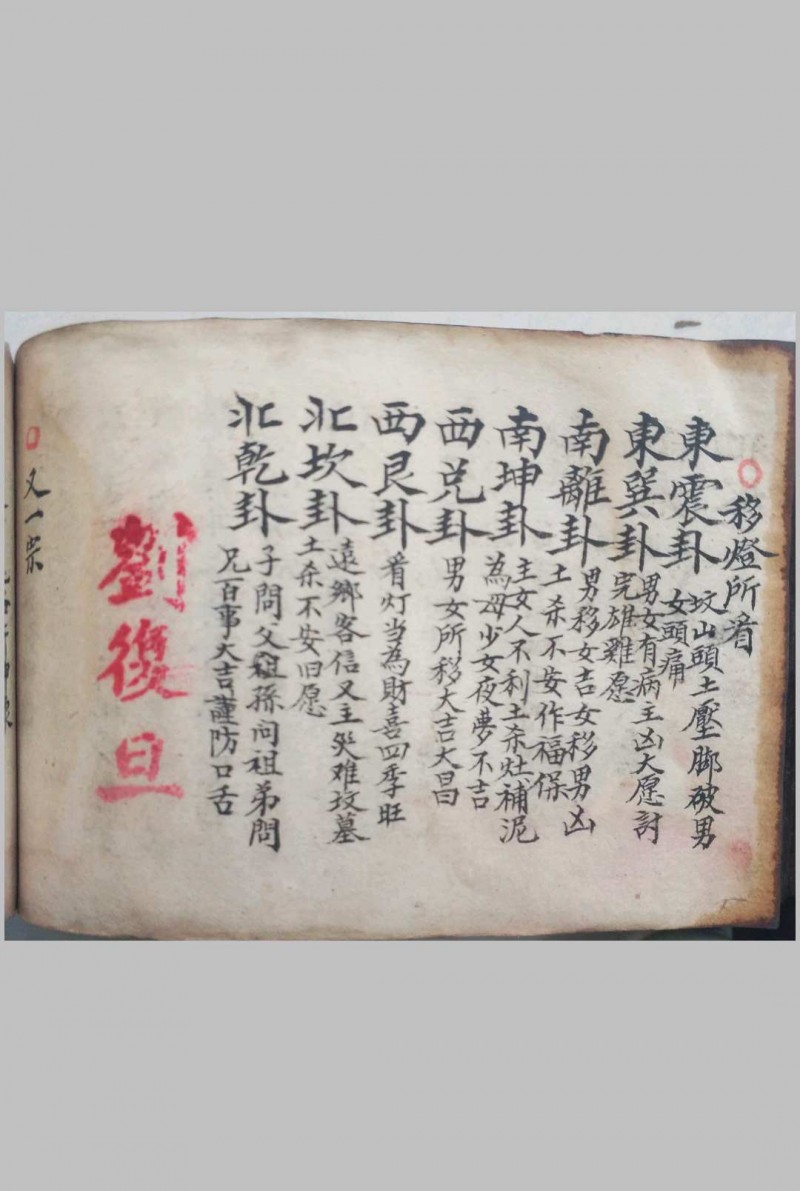 移燈所看
東震卦
坟山頭土壓一脚破男
女頭痛
東巽卦
男女有病主凶大愿討
完雄雞愿
南離卦
男移女吉女移男凶
土杀不安作福保
南坤卦
主女人不利土杀灶補泥
為母少女夜夢不吉
西兑卦
男女所移大吉大昌
西艮卦
看灯当為財喜四季旺
北坎卦
遠鄉客信又主災难坟墓
土杀不安旧愿
北乾卦
子問父祖孫问祖弟問
兄百事大吉謹防口舌
劉復旦
又一宗